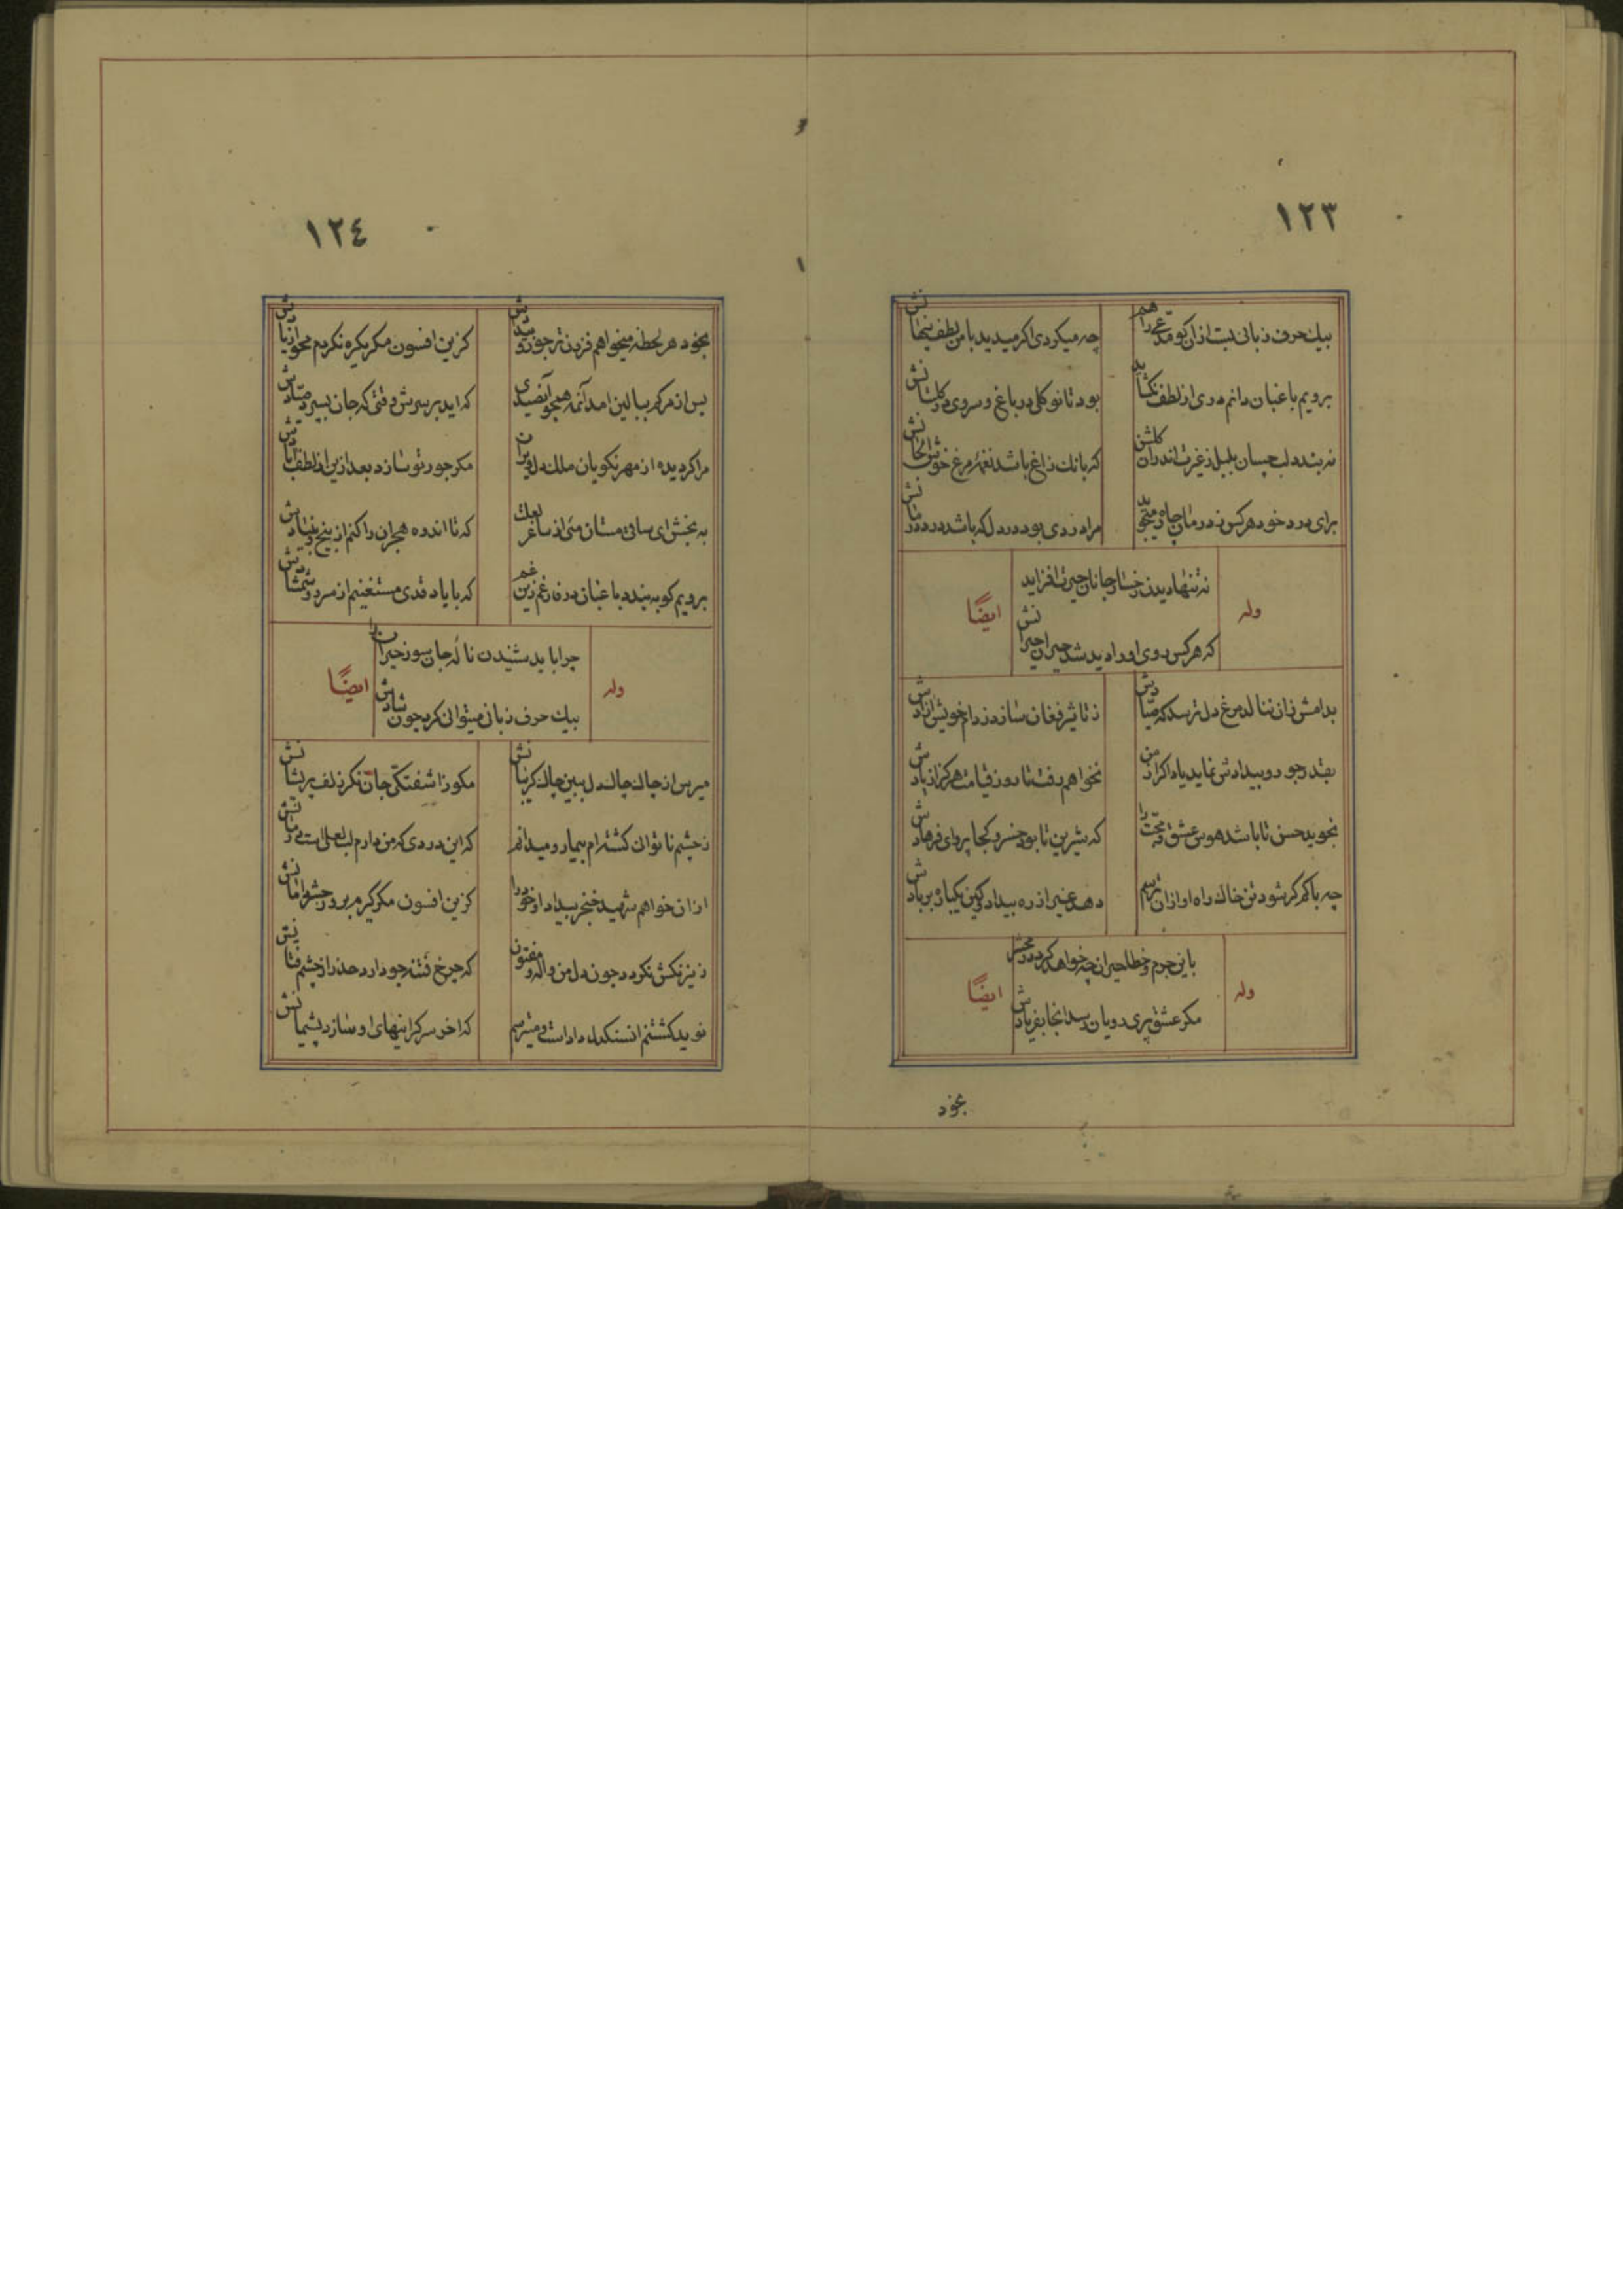 ١٢٣
بیك حرف زبانی بست ازان کو مدعی را هم
چه میکردی اکر میدید با من لطف پنهانش
برویم باغبان دانم دری از لطف نکشاید
بود تا نو کلی در باغ و سروی در کلستانش
نه بندد لب چسان بلبل ز غیرت اندران کلشن
که بانك زاغ باشد نغمهٔ مرغ خوش الحانش
برای درد خود هر کس ز درمان چاره میجوید
مرا دردی بود در دل که باشد درد درمانش
نه تنها دیدن رخسار جانان حیرت افزاید
وله
ایضًا
که هر کس روی او را دید شد حیران حیرانش
بدامش زان ننالد مرغ دل ترسد که صیادش
ز تاثیر فغان سازد ز دام خویش ازادش
بقدر جور و بیدادش نماید یاد اکر از من
نخواهم رفت تا روز قیامت هرکز از یادش
نجوید حسن تا باشد هوس عشق و محبت را
که شیرین تا بود خسرو کجا پروای فرهادش
چه باکم کر شود تن خاك راه او ازان ترسم
دهد غیر از ره بیداد و کین یکباره بر بادش
باین جرم و خطا حیران چه خواهد کرد در محشر
وله
ایضًا
مکر عشق پری رویان رسد انجا بفریادش
بخود
١٢٤
بخود هر لحظه میخواهم فزون تر جور و بیدادش
کزین افسون مکر یکره نکردم محو از یادش
پس از مرکم ببالین امد آنمه همچو آن صیدی
که اید بر سرش وقتی که جان بسپرد صیادش
مرا کردیده از مهر نکویان ملك دل ویران
مکر جور تو سازد بعد ازین از لطف ابادش
به بخش ای ساقی مستان می از ساغر لعلت
که تا اندوه هجران را کنم از بیخ و بنیادش
برویم کو به بندد باغبان در فارغم زین غم
که با یاد قدی مستغنیم از سرو و شمشادش
چرا باید شنیدن نالهٔ جان سوز حیران را
وله
ایضًا
بیك حرف زبانی میتوان کر چون شادش
مپرس از چاك چاك دل ببین چاك کریبانش
مکو ز اشفتکی جان نکر زلف پریشانش
ز چشم ناتوان کشته‌ام بیمار و میدانم
که این دردی که من دارم لب لعل است درمانش
ازان خواهم شهید خنجر بیداد او خود را
کزین افسون مکر کیرم بروز حشر دامانش
ز نیرنکش نکردد چون دل من واله و مفتون
که چرخ فتنه جو دارد حذر از چشم فتانش
نوید کشتنم ان سنکدل داد است و میترسم
که اخر سرکرانیهای او سازد پشیمانش